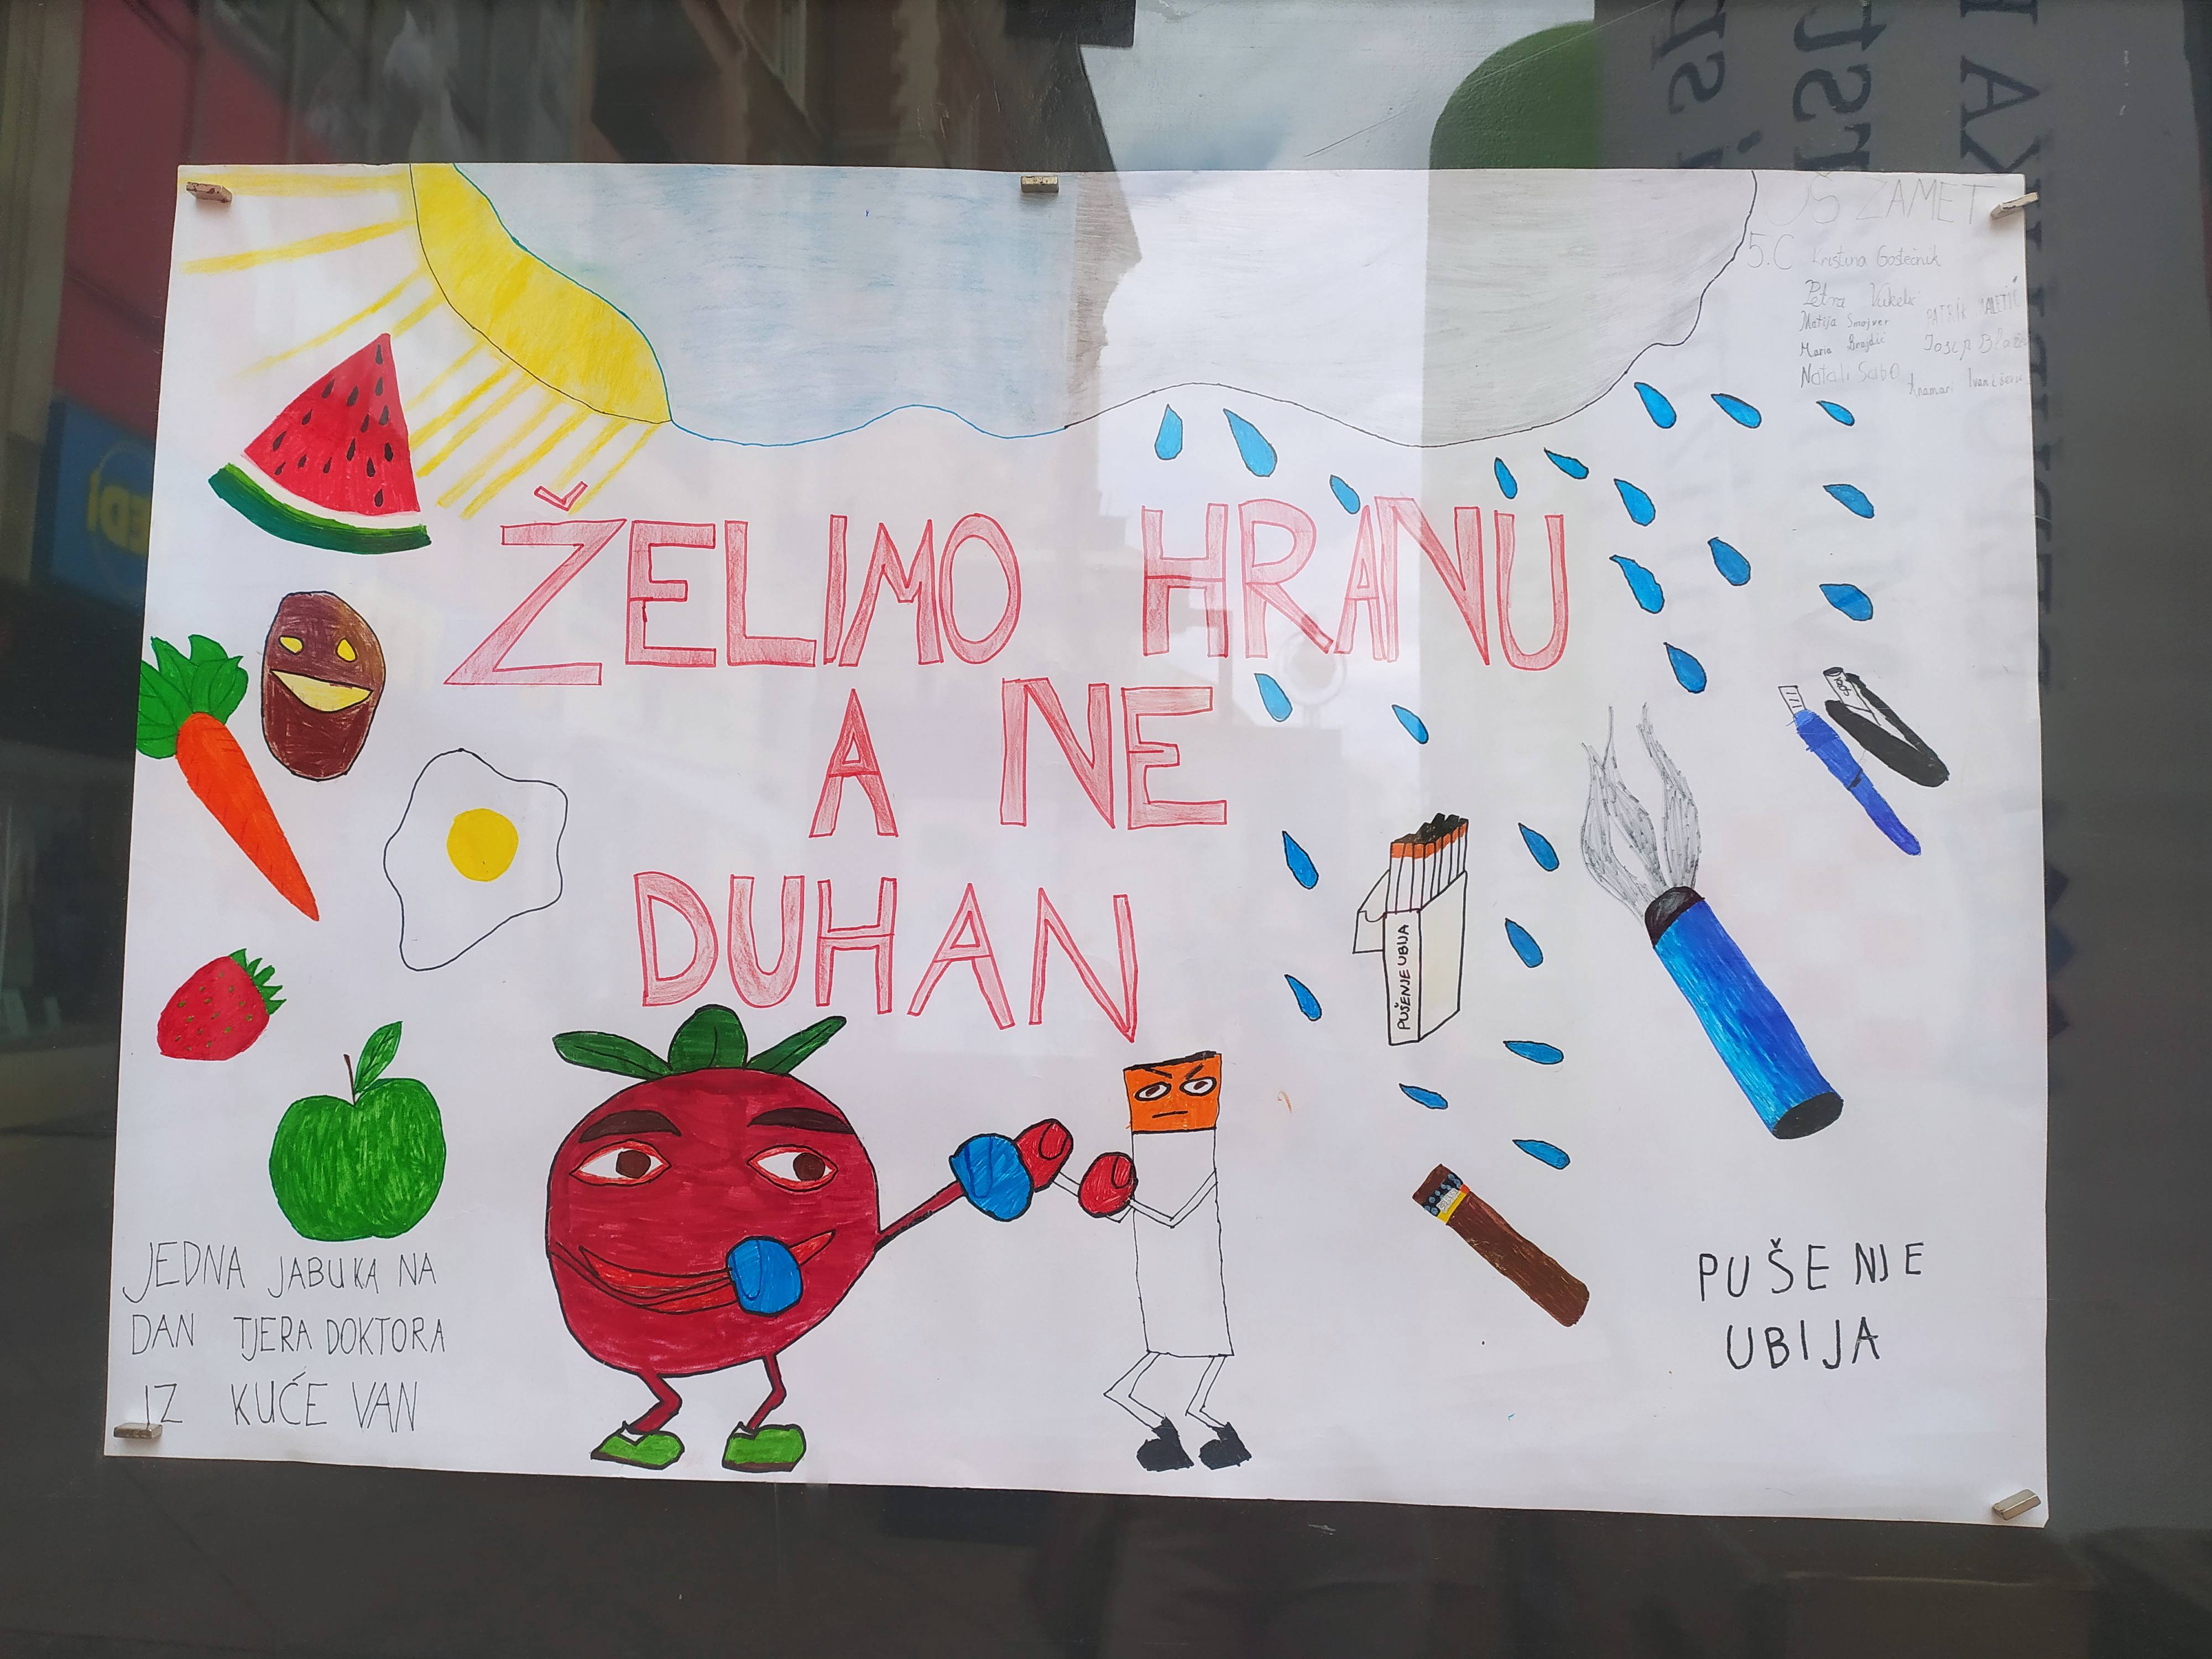 OŠ ZAMET
5.C Kristina Gostečnik
Petra Vukelić
Matija Smojver
Maria Brajdić
Natali Sabo
PATRIK
Josip
Anamari
ŽELIMO HRANU
A NE
DUHAN
PUŠENJE UBIJA
JEDNA JABUKA NA
DAN TJERA DOKTORA
IZ KUĆE VAN
PUŠENJE
UBIJA